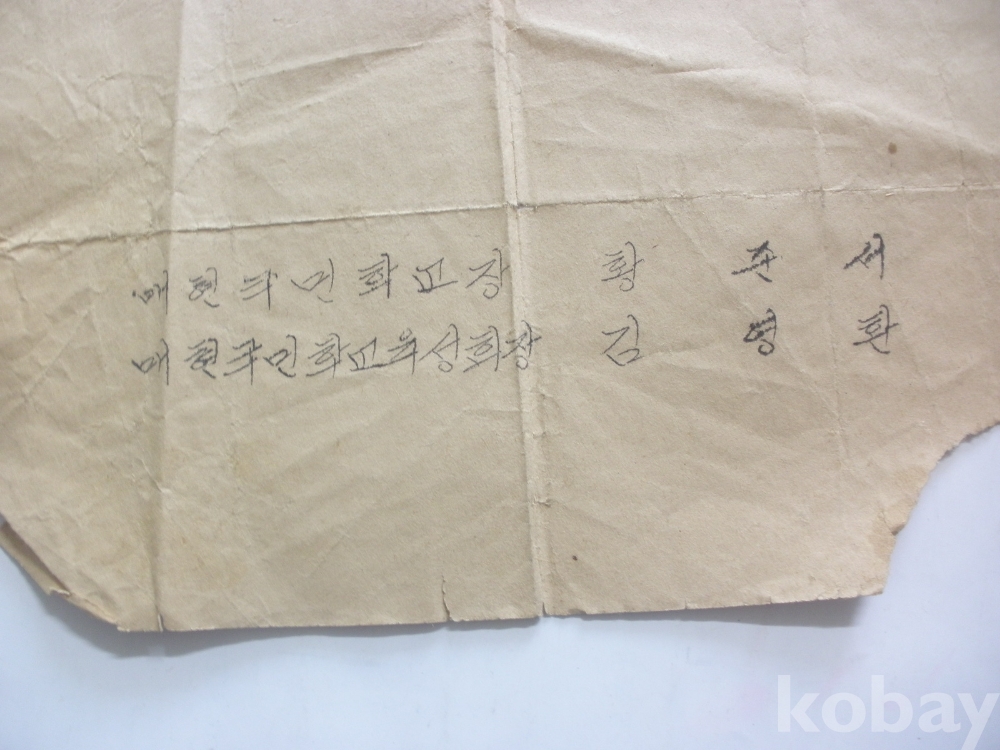 매현국민학교장 황 준 서
매현국민학교육성회장 김 영 환
kobay